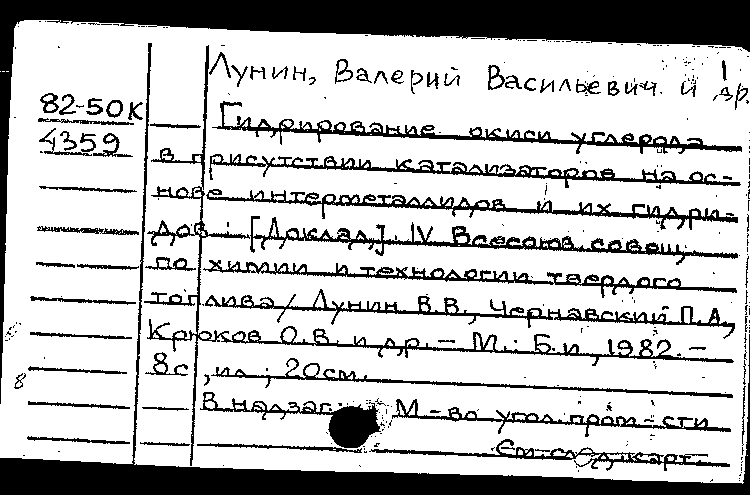 Лунин, Валерий Васильевич и др. 1
82-50К
4359
Гидрирование окиси углерода
в присутствии катализаторов на ос-
нове интерметаллидов и их гидри-
дов : [Доклад,] IV Всесоюз. совещ.
по химии и технологии твердого
топлива / Лунин В.В., Чернавский П.А.,
Крюков О.В. и др. – М.: Б.и, 1982. –
8с, ил ; 20см.
В надзаг. М-во угол. пром-сти
См. след. карт.
8